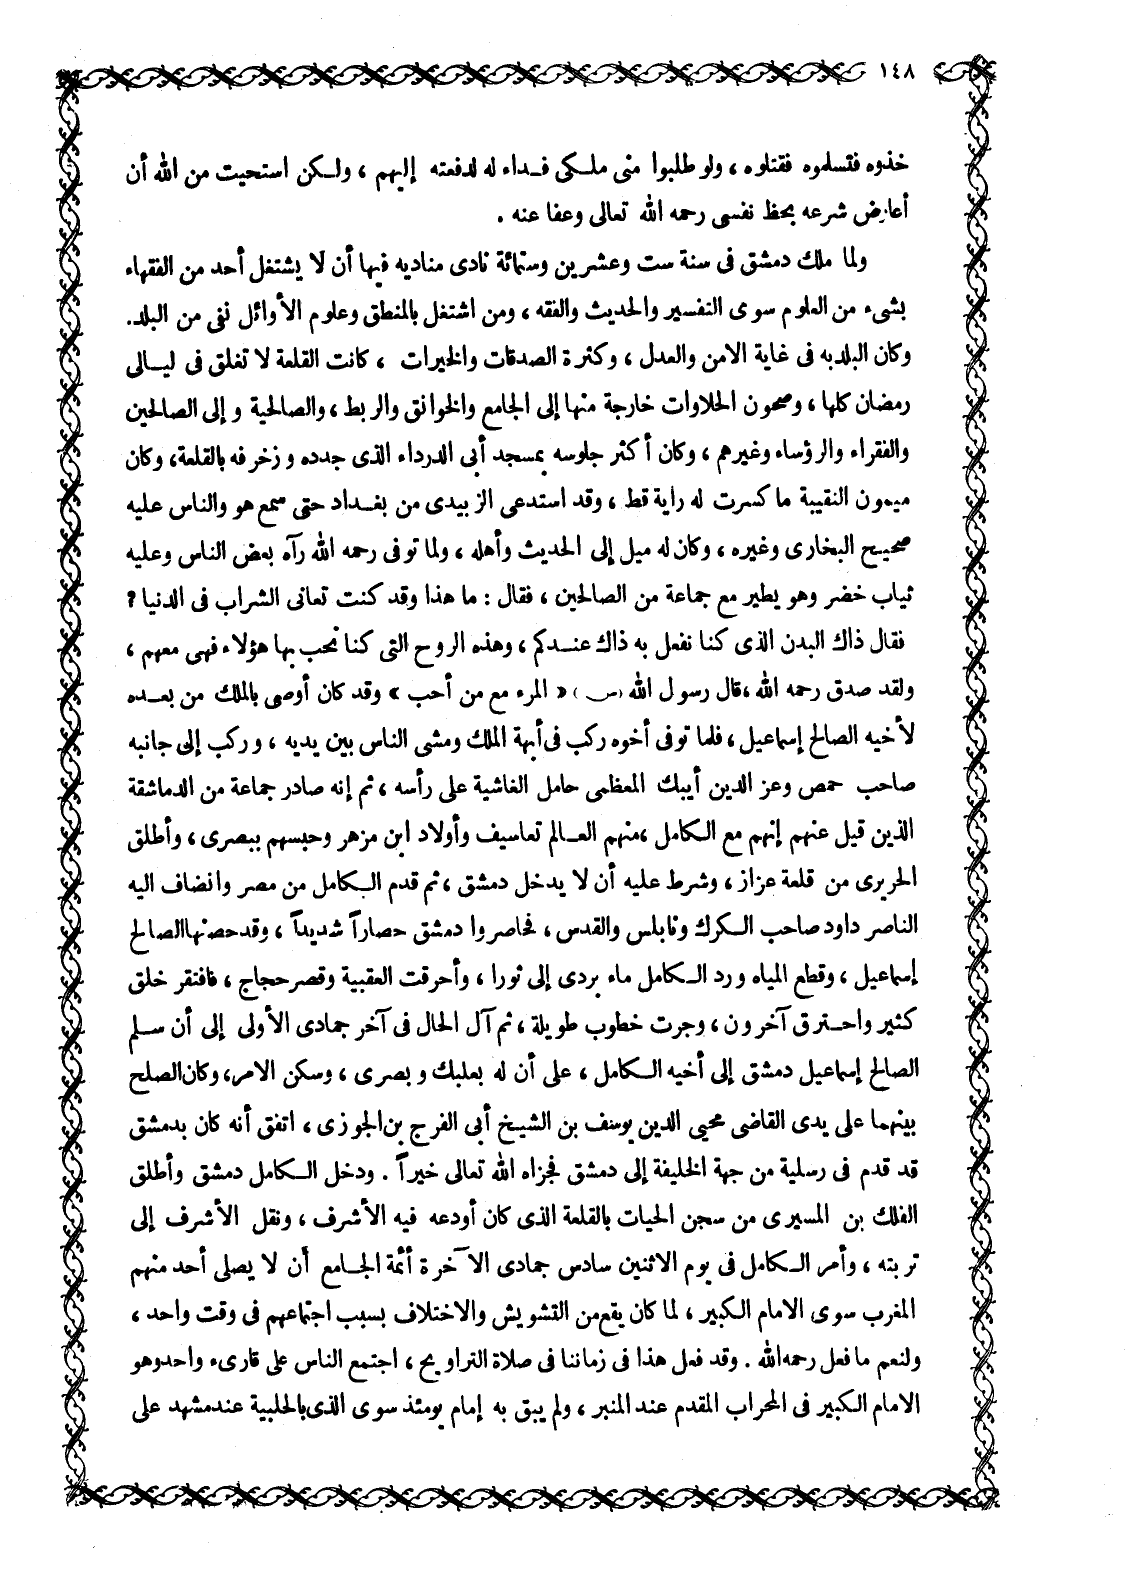 ١٤٨
خذوه فتسلموه فقتلوه ، ولو طلبوا منى ملكى فداء له لدفعته إليهم ، ولكن استحيت من الله أن
أعارض شرعه بحظ نفسى رحمه الله تعالى وعفا عنه .
ولما ملك دمشق فى سنة ست وعشرين وستمائة نادى مناديه فيها أن لا يشتغل أحد من الفقهاء
بشىء من العلوم سوى التفسير والحديث والفقه ، ومن اشتغل بالمنطق وعلوم الأوائل نفى من البلد.
وكان البلد به فى غاية الامن والعدل ، وكثرة الصدقات والخيرات ، كانت القلعة لا تغلق فى ليالى
رمضان كلها ، وصحون الحلاوات خارجة منها إلى الجامع والخوانق والربط ، والصالحية و إلى الصالحين
والفقراء والرؤساء وغيرهم ، وكان أكثر جلوسه بمسجد أبى الدرداء الذى جدده و زخرفه بالقلعة، وكان
ميمون النقيبة ما كسرت له راية قط ، وقد استدعى الزبيدى من بغداد حتى سمع هو والناس عليه
صحيح البخارى وغيره ، وكان له ميل إلى الحديث وأهله ، ولما توفى رحمه الله رآه بعض الناس وعليه
ثياب خضر وهو يطير مع جماعة من الصالحين ، فقال : ما هذا وقد كنت تعانى الشراب فى الدنيا ؟
فقال ذاك البدن الذى كنا نفعل به ذاك عندكم ، وهذه الروح التى كنا نحب بها هؤلاء فهى معهم ،
ولقد صدق رحمه الله ،قال رسول الله (ص) « المرء مع من أحب » وقد كان أوصى بالملك من بعده
لأخيه الصالح إسماعيل ، فلما توفى أخوه ركب فى أبهة الملك ومشى الناس بين يديه ، وركب إلى جانبه
صاحب حمص وعز الدين أيبك المعظمى حامل الغاشية على رأسه ، ثم إنه صادر جماعة من الدماشقة
الذين قيل عنهم إنهم مع الكامل ،منهم العالم تعاسيف وأولاد ابن مزهر وحبسهم ببصرى ، وأطلق
الحريرى من قلعة عزاز ، وشرط عليه أن لا يدخل دمشق ، ثم قدم الكامل من مصر وانضاف اليه
الناصر داود صاحب الكرك ونابلس والقدس ، فحاصروا دمشق حصاراً شديداً ، وقد حصنها الصالح
إسماعيل ، وقطع المياه ورد الكامل ماء بردى إلى ثورا ، وأحرقت العقبية وقصر حجاج ، فافتقر خلق
كثير واحترق آخرون ، وجرت خطوب طويلة ، ثم آل الحال فى آخر جمادى الأولى إلى أن سلم
الصالح إسماعيل دمشق إلى أخيه الكامل ، على أن له بعلبك و بصرى ، وسكن الامر، وكان الصلح
بينهما على يدى القاضى محيى الدين يوسف بن الشيخ أبى الفرج بن الجوزى ، اتفق أنه كان بدمشق
قد قدم فى رسلية من جهة الخليفة إلى دمشق فجزاه الله تعالى خيراً . ودخل الكامل دمشق وأطلق
الفلك بن المسيرى من سجن الحيات بالقلعة الذى كان أودعه فيه الأشرف ، ونقل الأشرف إلى
تربته ، وأمر الكامل فى يوم الاثنين سادس جمادى الآخرة أئمة الجامع أن لا يصلى أحد منهم
المغرب سوى الامام الكبير ، لما كان يقع من التشويش والاختلاف بسبب اجتماعهم فى وقت واحد ،
ولنعم ما فعل رحمه الله . وقد فعل هذا فى زماننا فى صلاة التراويح ، اجتمع الناس على قارىء واحد وهو
الامام الكبير فى المحراب المقدم عند المنبر ، ولم يبق به إمام يومئذ سوى الذى بالحلبية عند مشهد على